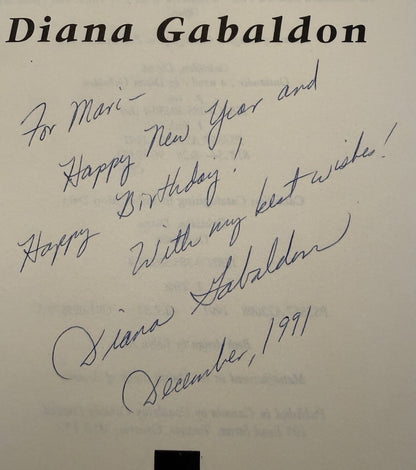 Diana Gabaldon
For Mari-
Happy New Year and
Happy Birthday!
With my best wishes!
Diana Gabaldon
December, 1991